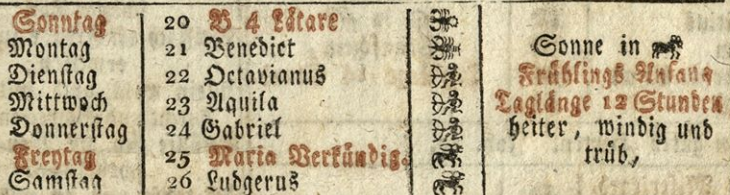 Sonntag 20 B 4 Lätare
Montag 21 Benedict
Dienstag 22 Octavianus
Mittwoch 23 Aquila
Donnerstag 24 Gabriel
Freytag 25 Maria Verkündig.
Samstag 26 Ludgerus
Sonne in
Frühlings Anfang
Taglänge 12 Stunden
heiter, windig und
trüb,